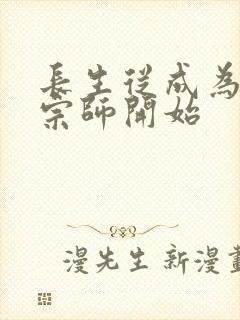 長生從成為
宗師開始
漫先生 新漫畫